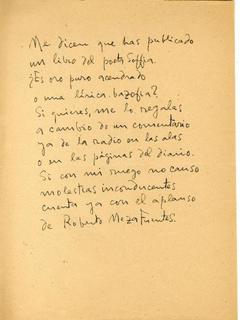 Me dicen que has publicado
un libro del poeta Soffia.
¿Es oro puro acendrado
o una lírica bazofia?
Si quieres, me lo regalas
a cambio de un comentario
ya de la radio en las alas
o en las páginas del diario.
Si con mi ruego no causo
molestias inconducentes
cuenta ya con el aplauso
de Roberto Meza Fuentes.